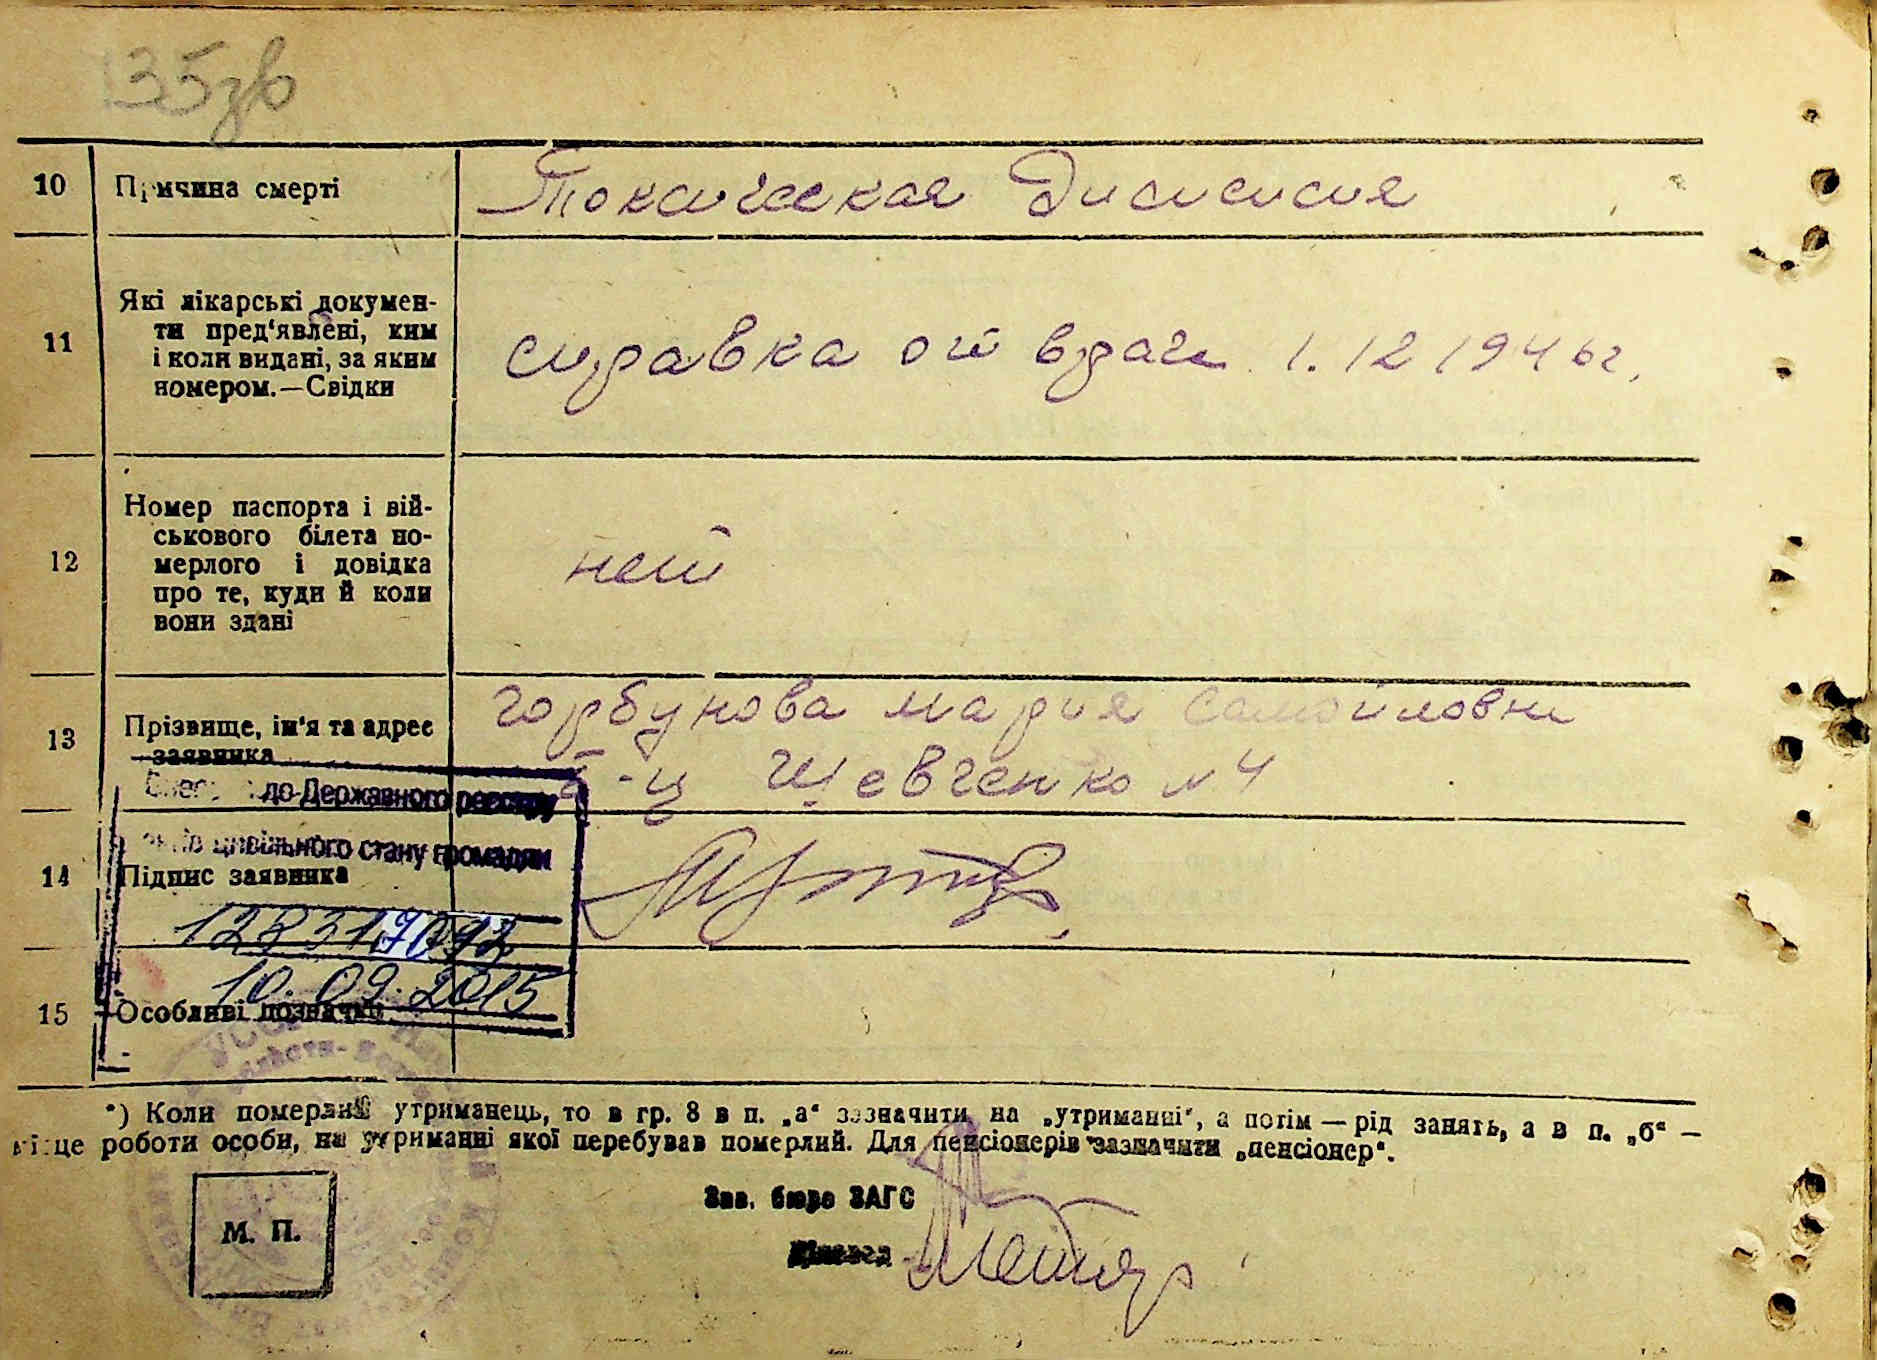 135зв
10 Причина смерті Токсическая Диспепсия
11 Які лікарські докумен-
ти пред'явлені, ким
і коли видані, за яким
номером.—Свідки
справка от врача 1.12 1946г.
12 Номер паспорта і вій-
ськового білета по-
мерлого і довідка
про те, куди й коли
вони здані
нет
13 Прізвище, ім'я та адрес
заявника
горбунова мария Самойловна
Б-Ц Шевченко №4
до Державного реєстру
цивільного стану громадян
14 Підпис заявника
10.09.2015
15 Особливі позначки
*) Коли померлий утриманець, то в гр. 8 в п. „а“ зазначити на „утриманні“, а потім — рід занять, а в п. „б“ —
місце роботи особи, на утриманні якої перебував померлий. Для пенсіонерів зазначити „пенсіонер“.
Зав. бюро ЗАГС
М. П.
Діловод